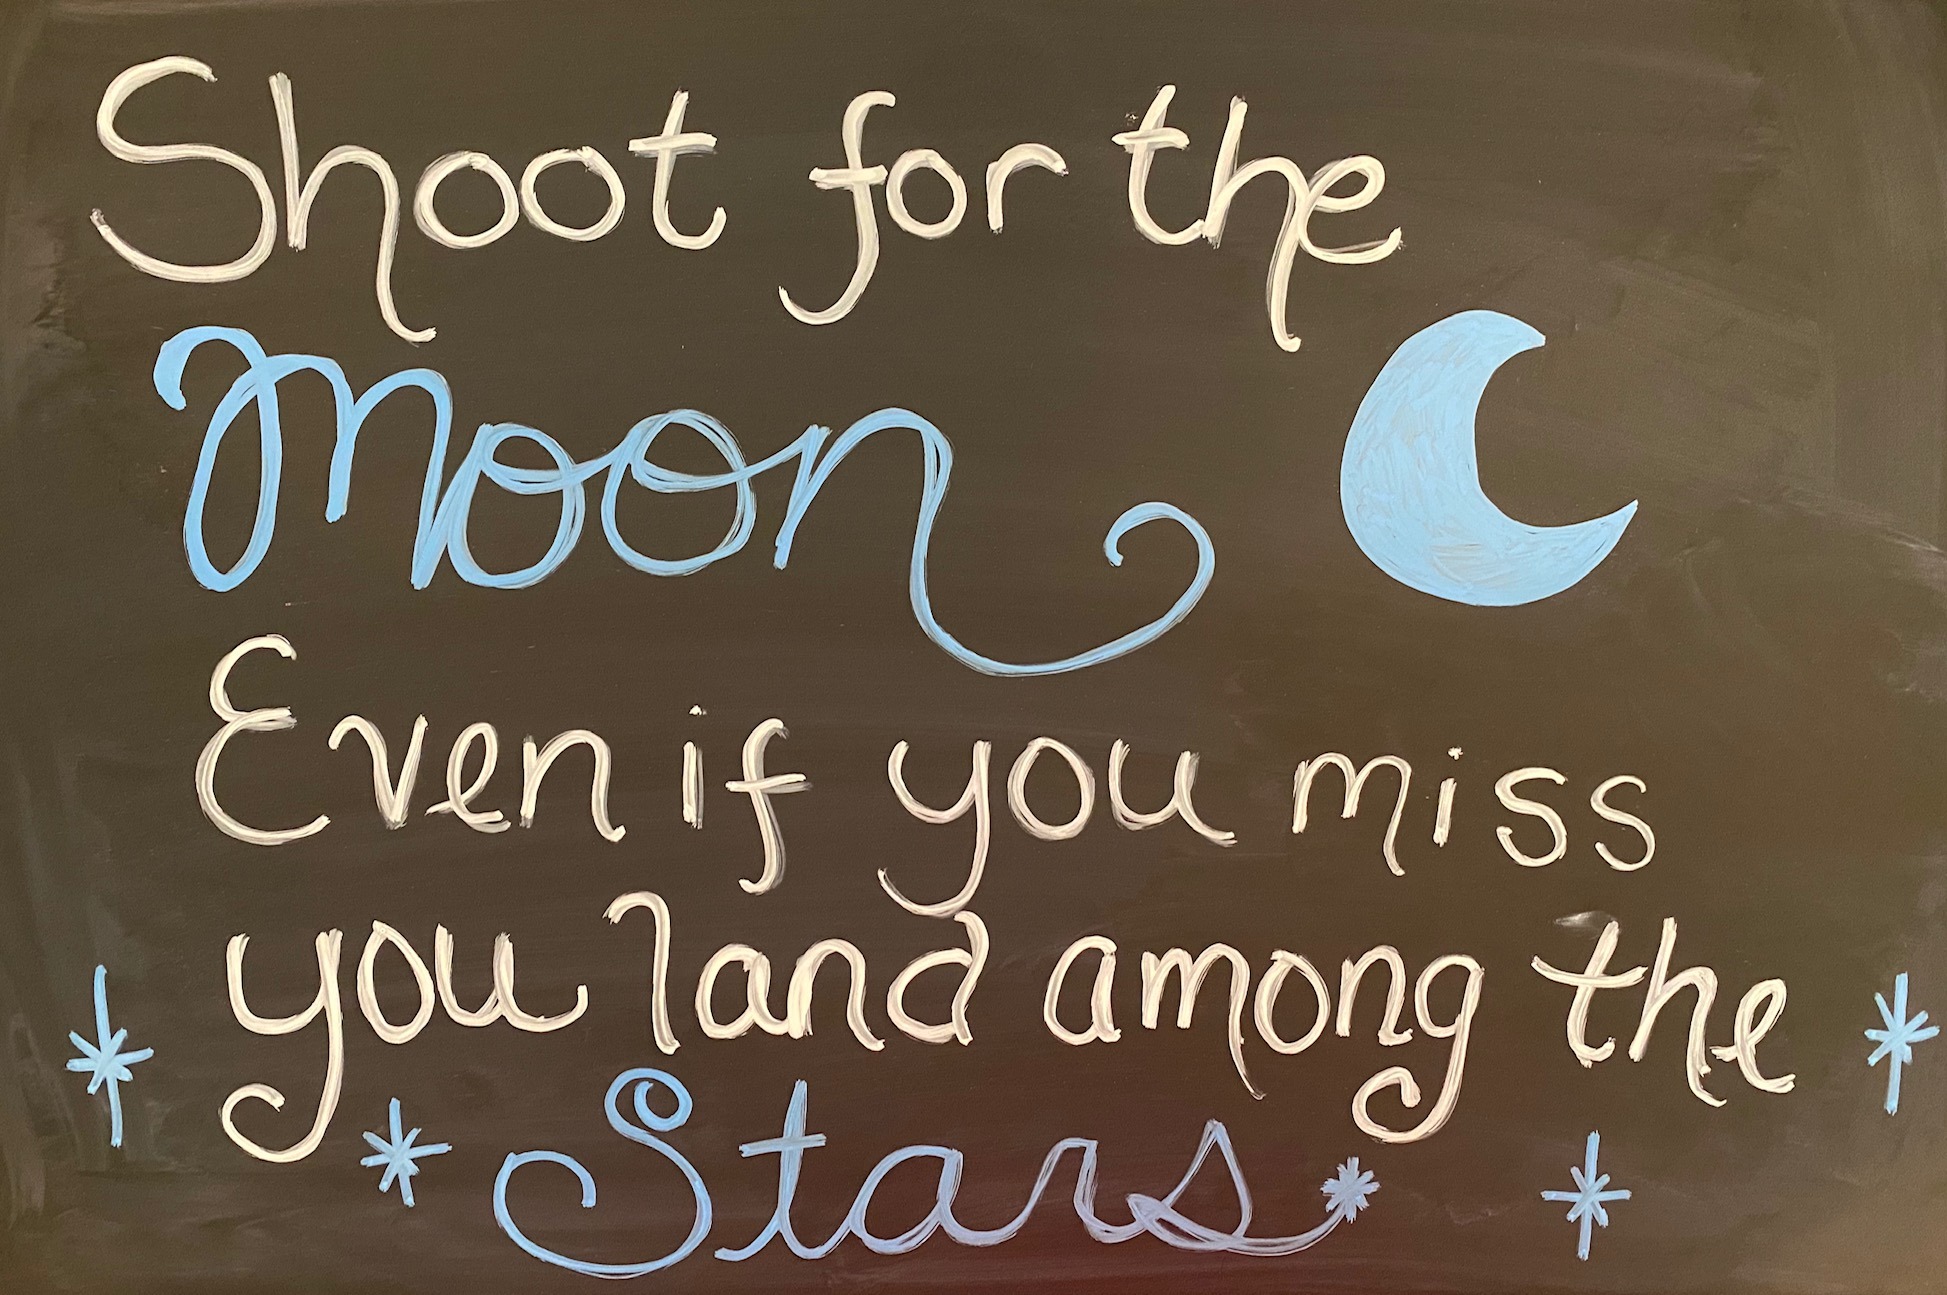 Shoot for the
Moon
Even if you miss
you land among the
Stars